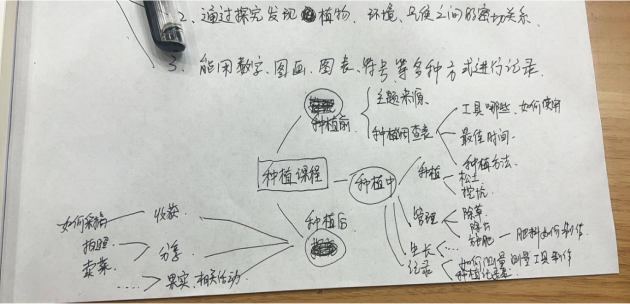 2、通过探究发现植物、环境、之间的密切关系。
3、能用数字、图画、图表、符号等多种方式进行记录。
种植前
主题来源
种植调查表
工具哪些、如何使用
最佳时间
种植方法
种植课程
种植中
种植
松土
挖坑
管理
除草
施肥
肥料如何制作
生长
...
记录
如何测量 测量工具制作
种植记录表
种植后
收获
如何采摘
分享
拍照
卖菜
果实相关活动
......